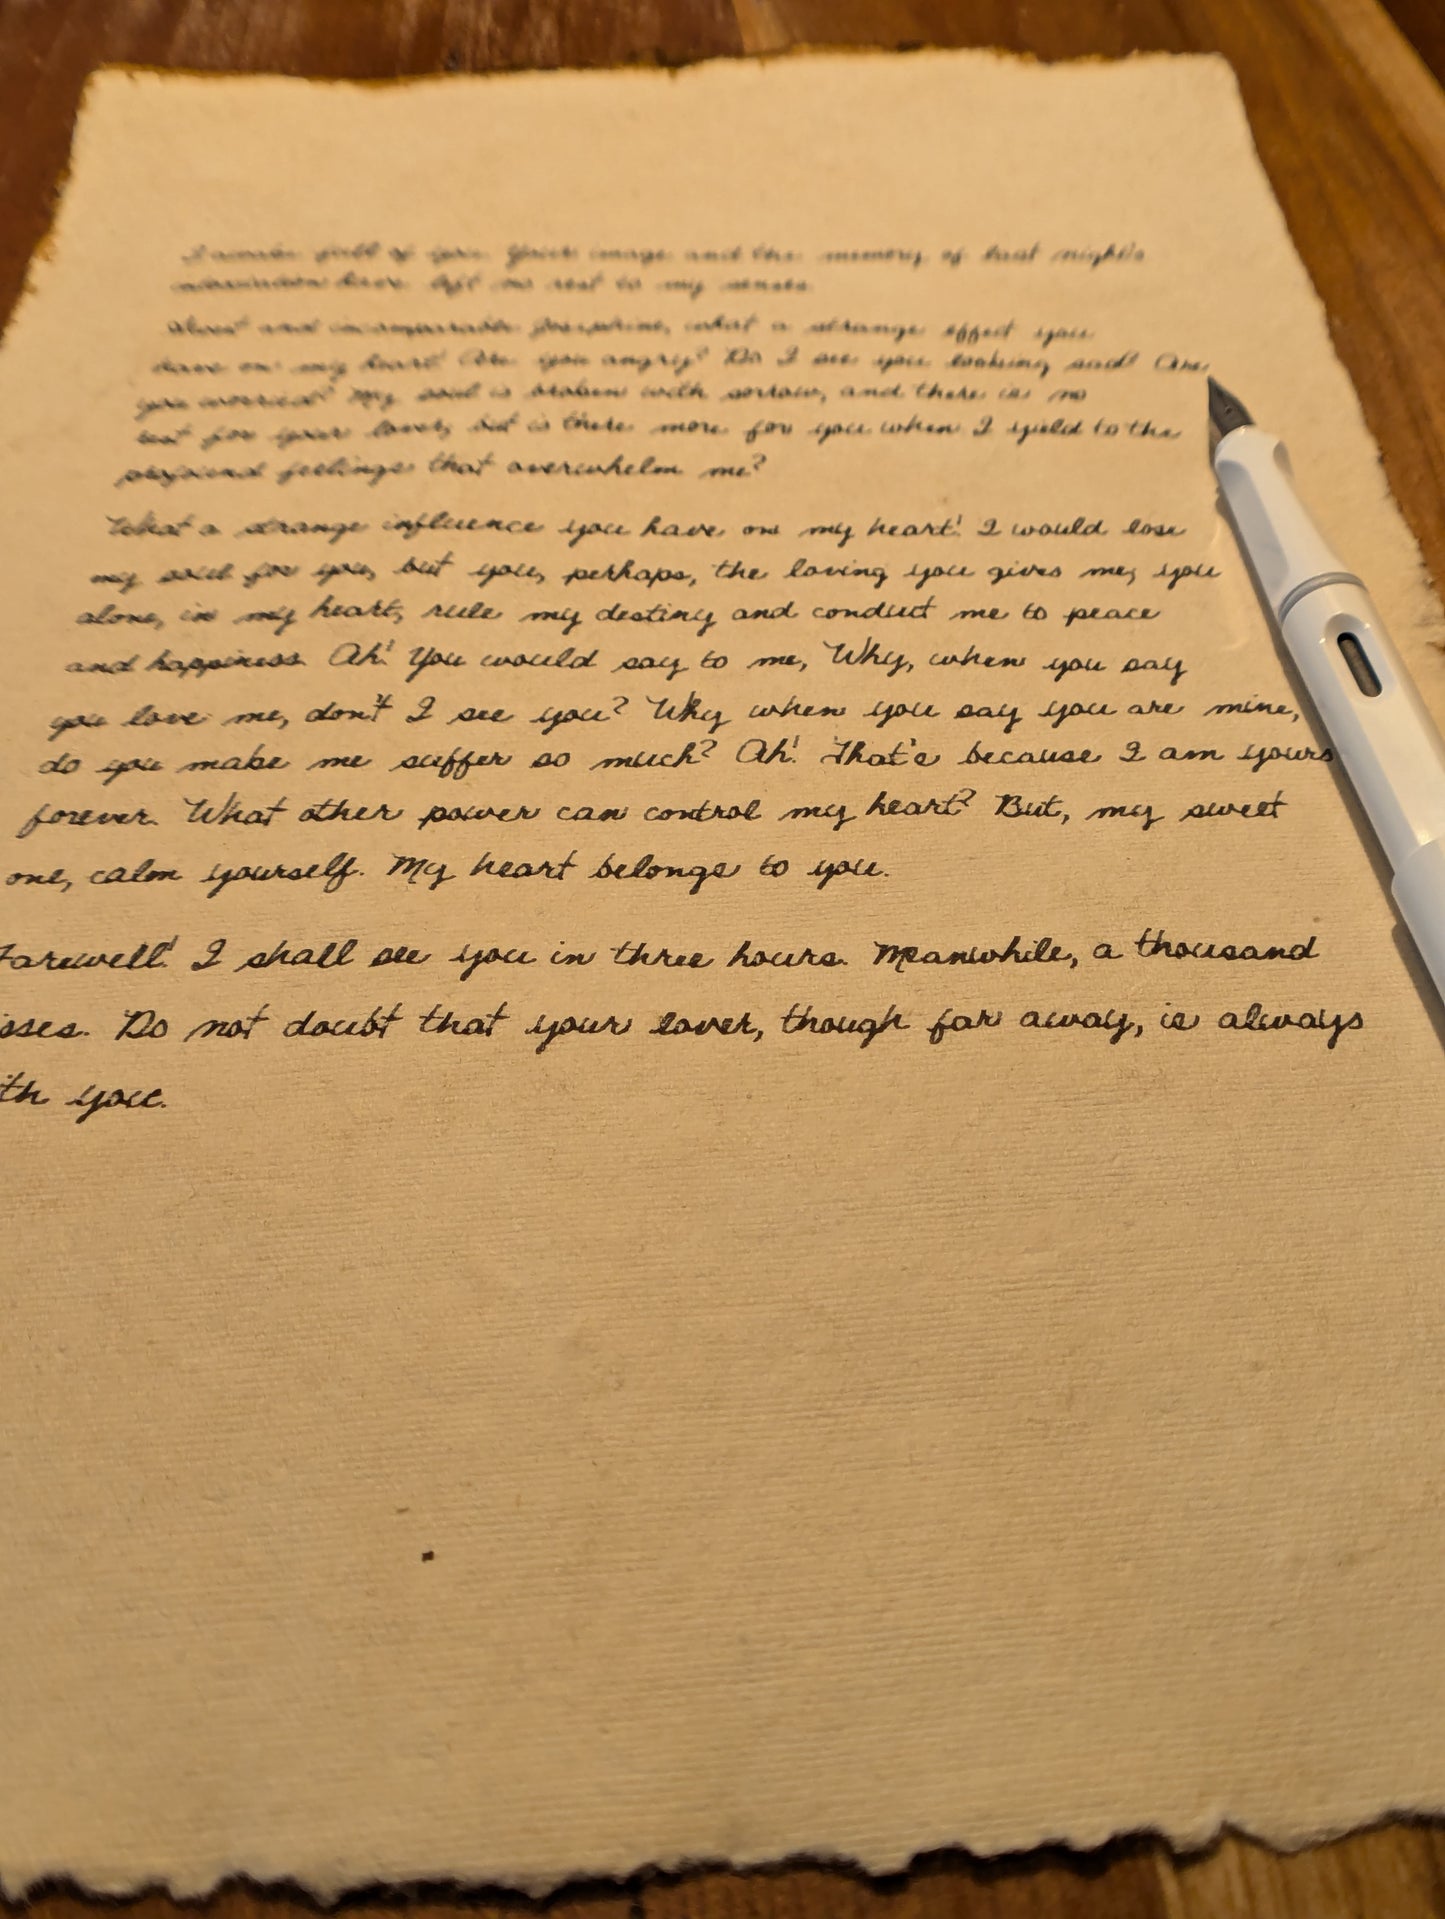 I awake full of you. Your image and the memory of last night's
have left no rest to my senses.
and incomparable Josephine, what a strange effect you
have on my heart! Are you angry? Do I see you looking sad? Are
you worried? My soul is broken with sorrow, and there is no
rest for your lover; but is there more for you when I yield to the
profound feelings that overwhelm me?
What a strange influence you have on my heart! I would lose
my soul for you, but you, perhaps, the loving you gives me; you
alone, in my heart, rule my destiny and conduct me to peace
and happiness. Ah! You would say to me, Why, when you say
you love me, don't I see you? Why when you say you are mine,
do you make me suffer so much? Ah! That's because I am yours
forever. What other power can control my heart? But, my sweet
one, calm yourself. My heart belongs to you.
Farewell! I shall see you in three hours. Meanwhile, a thousand
Do not doubt that your lover, though far away, is always
th you.